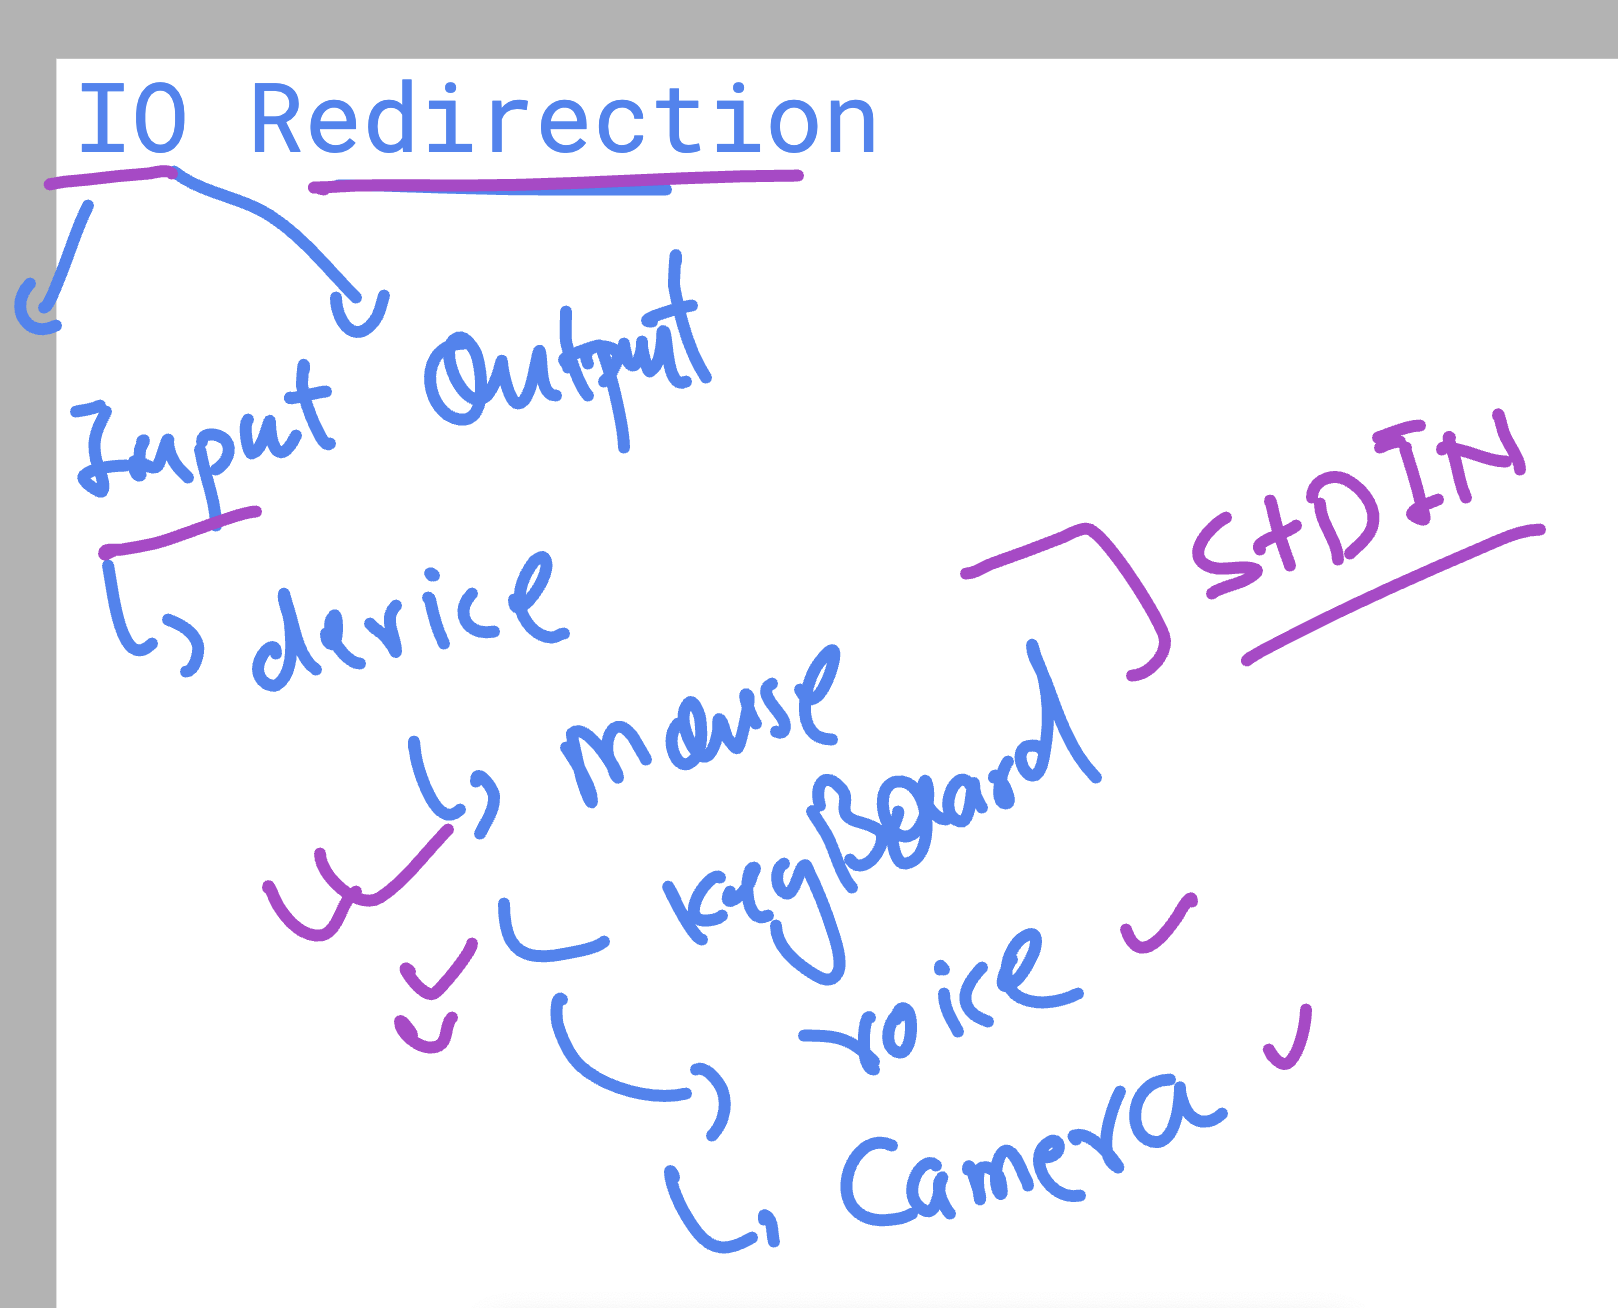 IO Redirection
Input Output
StDIN
device
mouse
keyBoard
voice
Camera